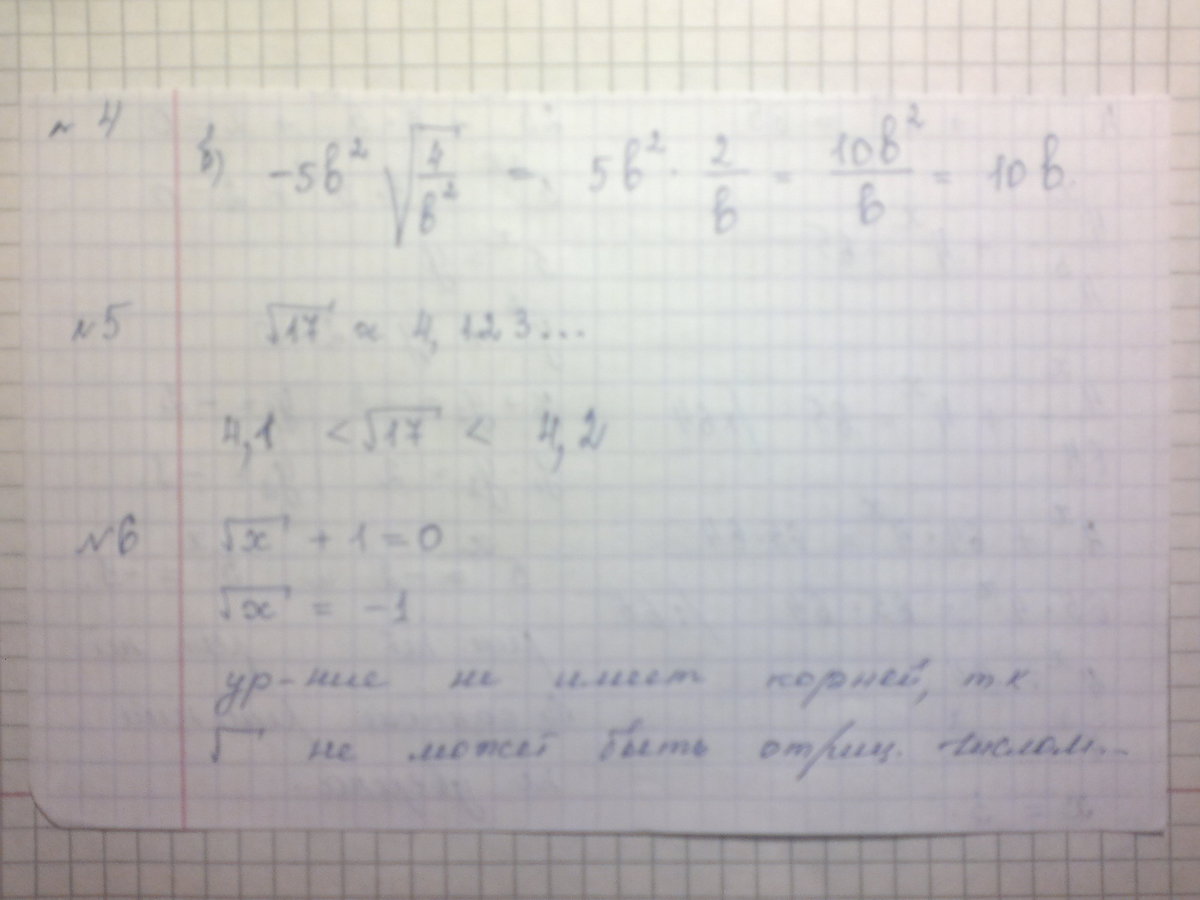 № 4
б) -5b² √(4/b²) = 5b² · 2/b = 10b²/b = 10b.
№5 √17 ≈ 4,123...
4,1 < √17 < 4,2
№6 √x + 1 = 0
√x = -1
ур-ние не имеет корней, т к
√ не может быть отриц. числом...